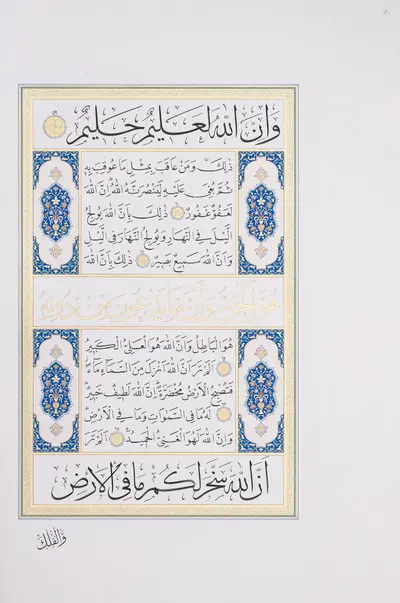 وَاِنَّ اللّٰهَ لَعَلِيمٌ حَلِيمٌ
ذٰلِكَ وَمَنْ عَاقَبَ بِمِثْلِ مَا عُوقِبَ بِهِ
ثُمَّ بُغِيَ عَلَيْهِ لَيَنْصُرَنَّهُ اللّٰهُ اِنَّ اللّٰهَ
لَعَفُوٌّ غَفُورٌ ذٰلِكَ بِاَنَّ اللّٰهَ يُولِجُ
الَّيْلَ فِي النَّهَارِ وَيُولِجُ النَّهَارَ فِي الَّيْلِ
وَاَنَّ اللّٰهَ سَمِيعٌ بَصِيرٌ ذٰلِكَ بِاَنَّ اللّٰهَ
هُوَ الْحَقُّ وَاَنَّ مَا يَدْعُونَ مِنْ دُونِهِ
هُوَ الْبَاطِلُ وَاَنَّ اللّٰهَ هُوَ الْعَلِيُّ الْكَبِيرُ
اَلَمْ تَرَ اَنَّ اللّٰهَ اَنْزَلَ مِنَ السَّمَاءِ مَاءً
فَتُصْبِحُ الْاَرْضُ مُخْضَرَّةً اِنَّ اللّٰهَ لَطِيفٌ خَبِيرٌ
لَهُ مَا فِي السَّمٰوَاتِ وَمَا فِي الْاَرْضِ
وَاِنَّ اللّٰهَ لَهُوَ الْغَنِيُّ الْحَمِيدُ اَلَمْ تَرَ
اَنَّ اللّٰهَ سَخَّرَ لَكُمْ مَا فِي الْاَرْضِ
وَالْفُلْكَ